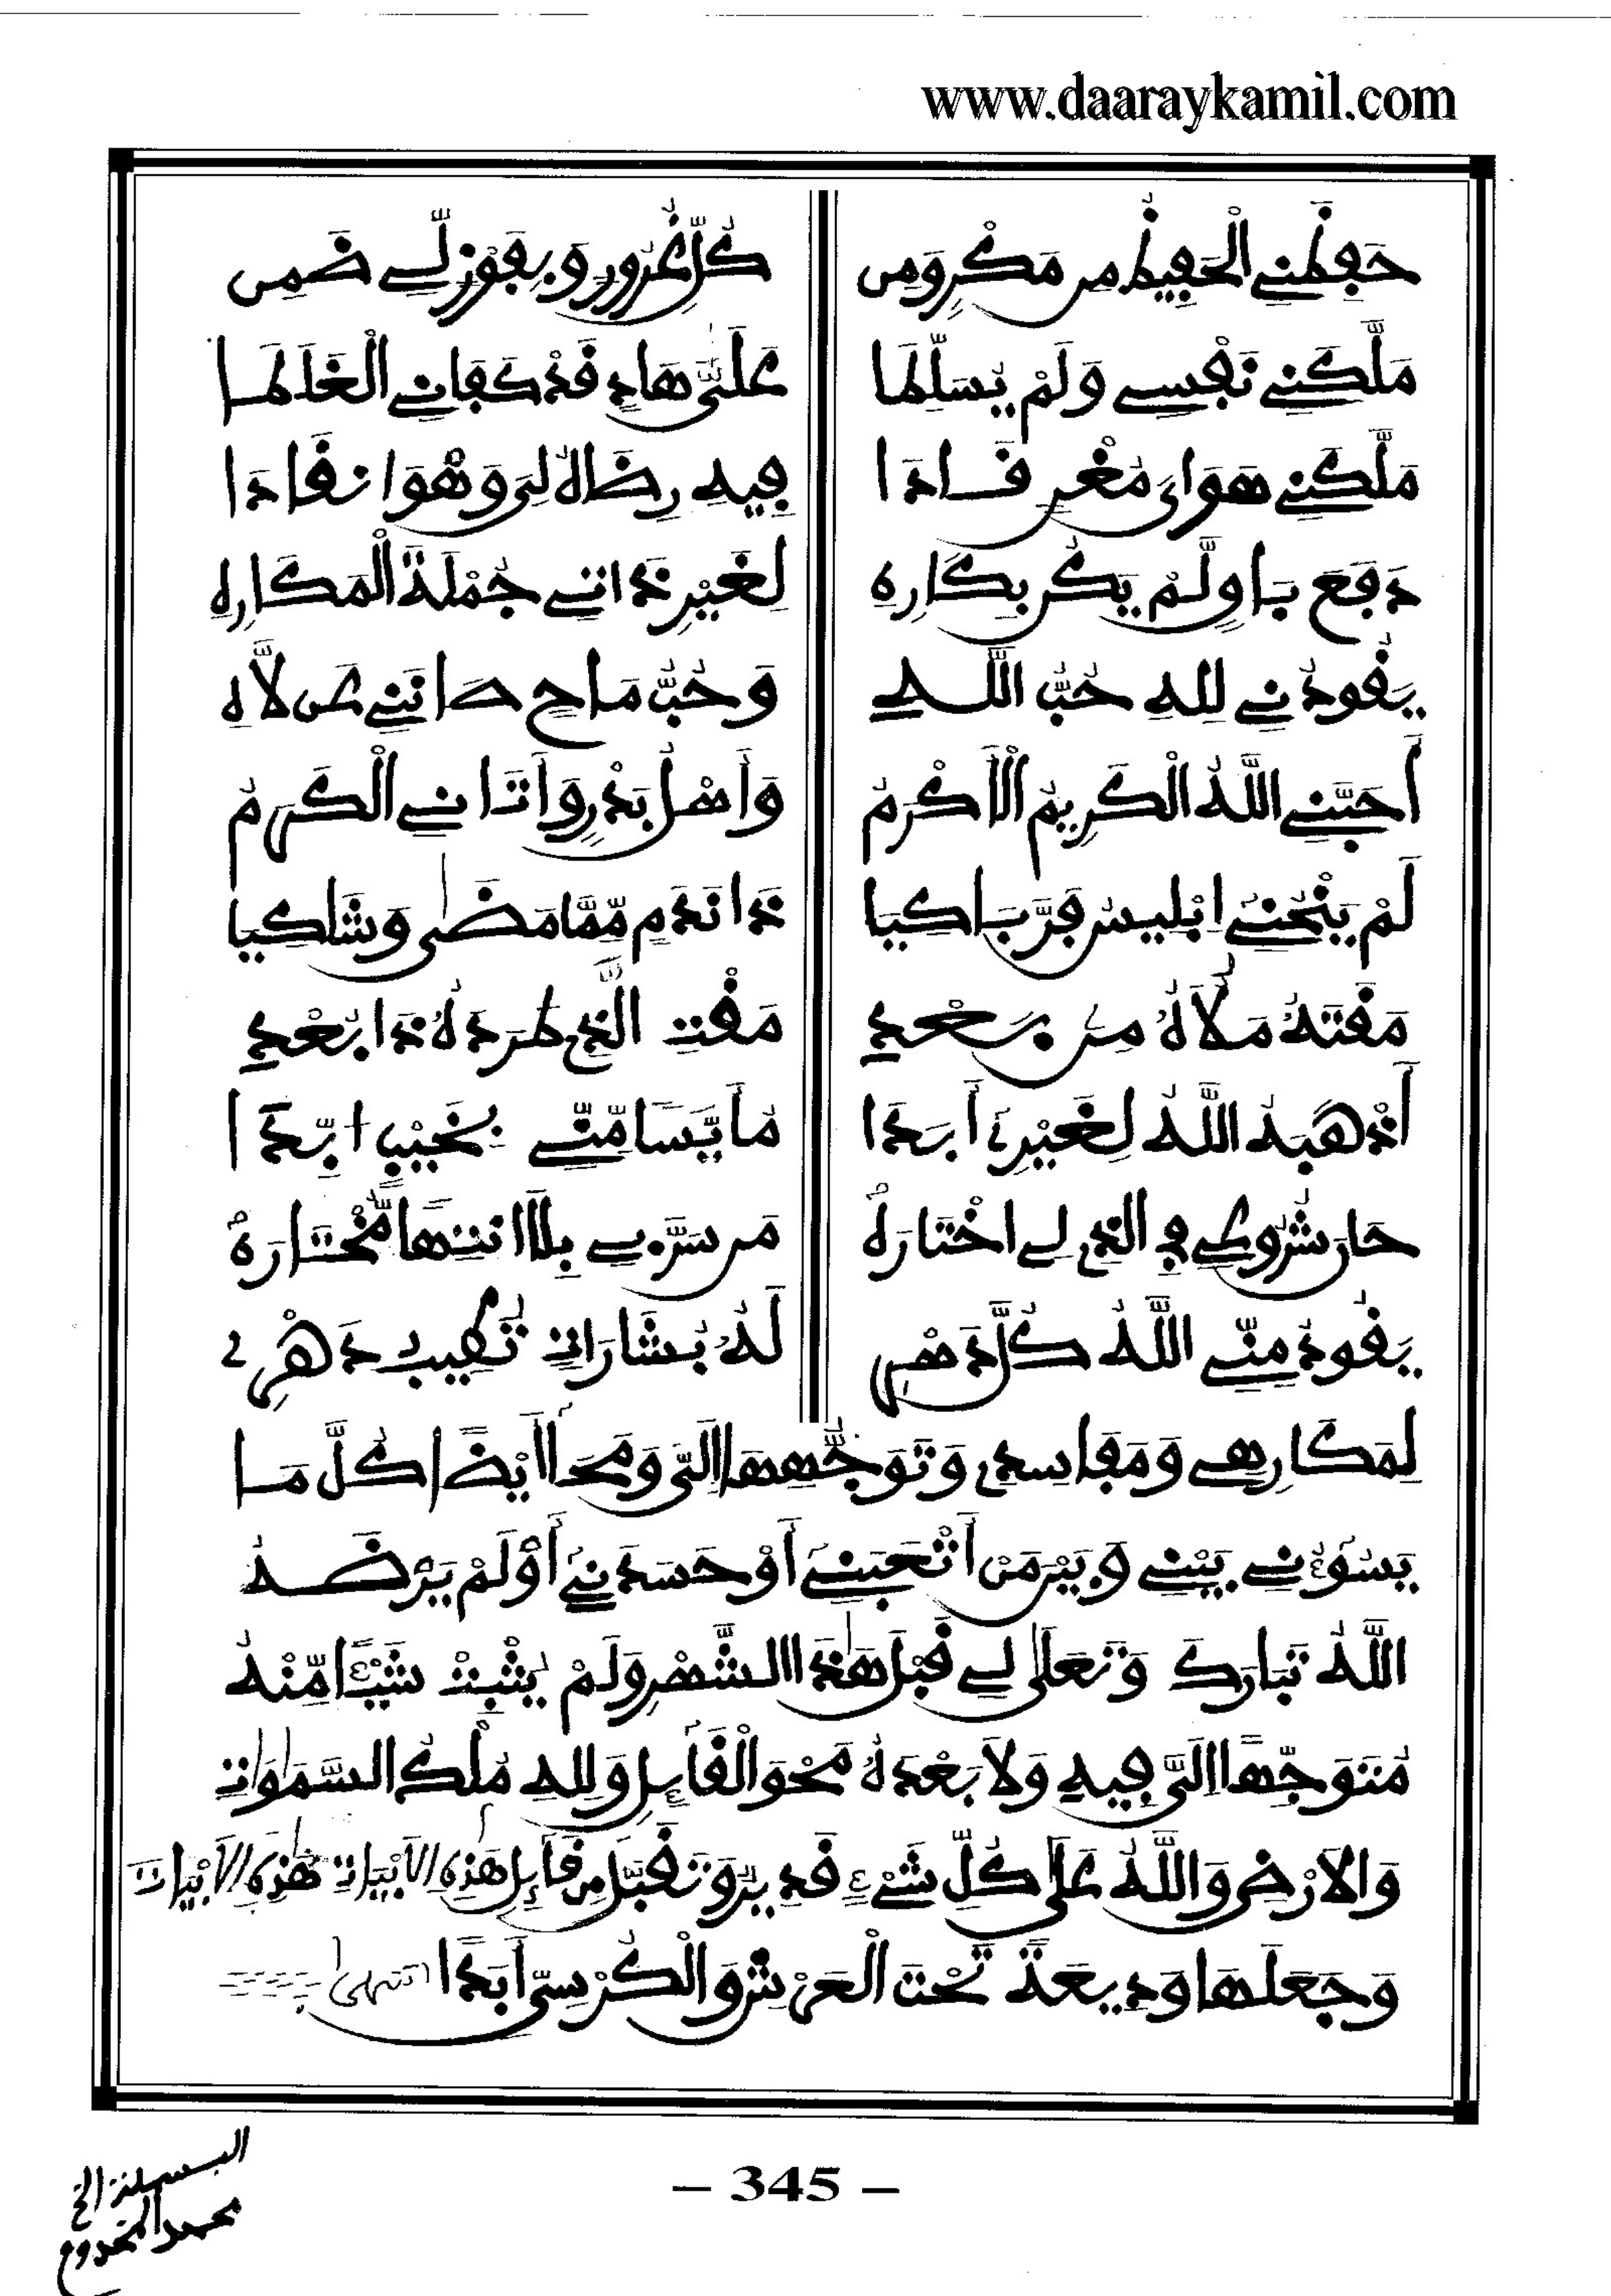 www.daaraykamil.com
حَفِظَنِي الْحَفِيظُ مِن مَّكْرٍ وَمِن كُلِّ غُرُورٍ وَبِفَوْزٍ لِي ضَمِن
مَلَّكَنِي نَفْسِي وَلَمْ يُسَلِّطَا عَلَيَّ هَادٍ قَدْ كَفَانِي الْغَلَطَا
مَلَّكَنِي هَوَايَ مُغْنٍ قَادَا فِيهِ رِضَاهُ لِي وَهْوَ انقَادَا
دَفَعَ بَاقٍ لَّمْ يَكُن بِكَارِهِ لِغَيْرِ ذَاتِي جُمْلَةَ الْمَكَارِهِ
يَقُودُنِي لِلهِ حُبُّ اللهِ وَحُبُّ مَاحٍ صَانَنِي عَن لَّاهِ
أَحَبَّنِي اللَّهُ الْكَرِيمُ الْأَكْرَمُ وَأَهْلُ بَدْرٍ وَأَتَانِي الْكَرَمُ
لَمْ يَنْحُنِي إبْلِيسُ فَرَّ بَاكِيَا ذَا نَدَمٍ مِّمَّا مَضَى وَشَاكِيَا
مَقَتَهُ مَوْلَاهُ مِن بَعْدِ مَقْتِ الَّذِي طَرَدَهُ ذَا بُعْدِ
أَذْهَبَهُ اللَّهُ لِغَيْرِي أَبَدَا مُأَيَّسًا مِنِّي بِخَيْبٍ أَبَدَا
حَازَ شُرُوطِي فِي الَّذِي لِي اخْتَارَهُ مَن سَرَّنِي بِلَا انْتِهَا مُخْتَارَهُ
يَقُودُ مِنِّي اللَّهُ كُلَّ دَهْرِ لَهُ بُشَارَاتٍ تُطِيبُ دَهْرِي
لِمَكَارِهِي وَمَفَاسِدِي وَتَوَجُّهِهَا إِلَيَّ وَمَحَا أَيْضًا كُلَّ مَا
يَسُوءُنِي بَيْنِي وَبَيْنَ مَنْ أَتْعَبَنِي أَوْ حَسَدَنِي أَوْ لَمْ يَرْضَهُ
اللَّهُ تَبَارَكَ وَتَعَلَى لِي قَبْلَ هَذَا الشَّهْرِ وَلَمْ يُثْبِتْ شَيْئًا مِّنْهُ
مُتَوَجِّهًا إِلَيَّ فِيهِ وَلَا بَعْدَهُ مَحْوَ الْقَائِلِ وَلِلهِ مُلْكُ السَّمَوَاتِ
وَالْأَرْضِ وَاللَّهُ عَلَى كُلِّ شَيْءٍ قَدِيرٌ وَتَقَبَّلَ مِن قَائِلِ هَذِهِ الْأَبْيَاتِ هَذِهِ الْأَبْيَاتَ
وَجَعَلَهَا وَدِيعَةً تَحْتَ الْعَرْشِ وَالْكُرْسِيِّ أَبَدًا انتهى
البسملة الخ
محمد
– 345 –